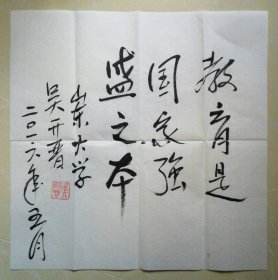 教育是
国家强
盛之本
山东大学
吴开晋
二〇一六年五月